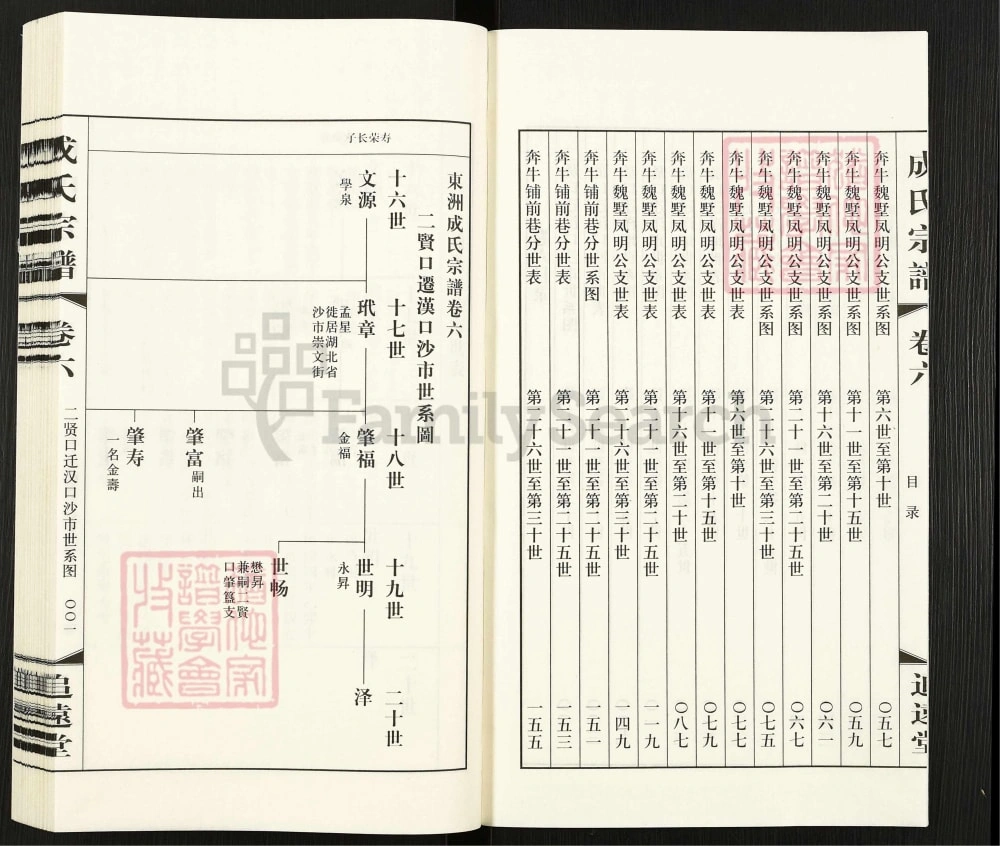 成氏宗譜
卷六
目录
追遠堂
奔牛魏墅凤明公支世系图 第六世至第十世 〇五七
奔牛魏墅凤明公支世系图 第十一世至第十五世 〇五九
奔牛魏墅凤明公支世系图 第十六世至第二十世 〇六一
奔牛魏墅凤明公支世系图 第二十一世至第二十五世 〇六七
奔牛魏墅凤明公支世系图 第二十六世至第三十世 〇七五
奔牛魏墅凤明公支世表 第六世至第十世 〇七七
奔牛魏墅凤明公支世表 第十一世至第十五世 〇七九
奔牛魏墅凤明公支世表 第十六世至第二十世 〇八七
奔牛魏墅凤明公支世表 第二十一世至第二十五世 一一九
奔牛魏墅凤明公支世表 第二十六世至第三十世 一四九
奔牛铺前巷分世系图 第二十一世至第二十五世 一五一
奔牛铺前巷分世表 第二十一世至第二十五世 一五三
奔牛铺前巷分世表 第二十六世至第三十世 一五五
東洲成氏宗譜卷六
二賢口遷漢口沙市世系圖
十六世
十七世
十八世
十九世
二十世
寿荣长子
文源
學泉
玳章
孟星
徙居湖北省
沙市崇文街
肇福
金福
肇富
嗣出
肇寿
一名金壽
世明
永昇
世畅
懋昇
兼嗣二賢
口肇簋支
泽
成氏宗譜
卷六
二贤口迁汉口沙市世系图
〇〇一
追遠堂
FamilySearch
譜學會
收藏